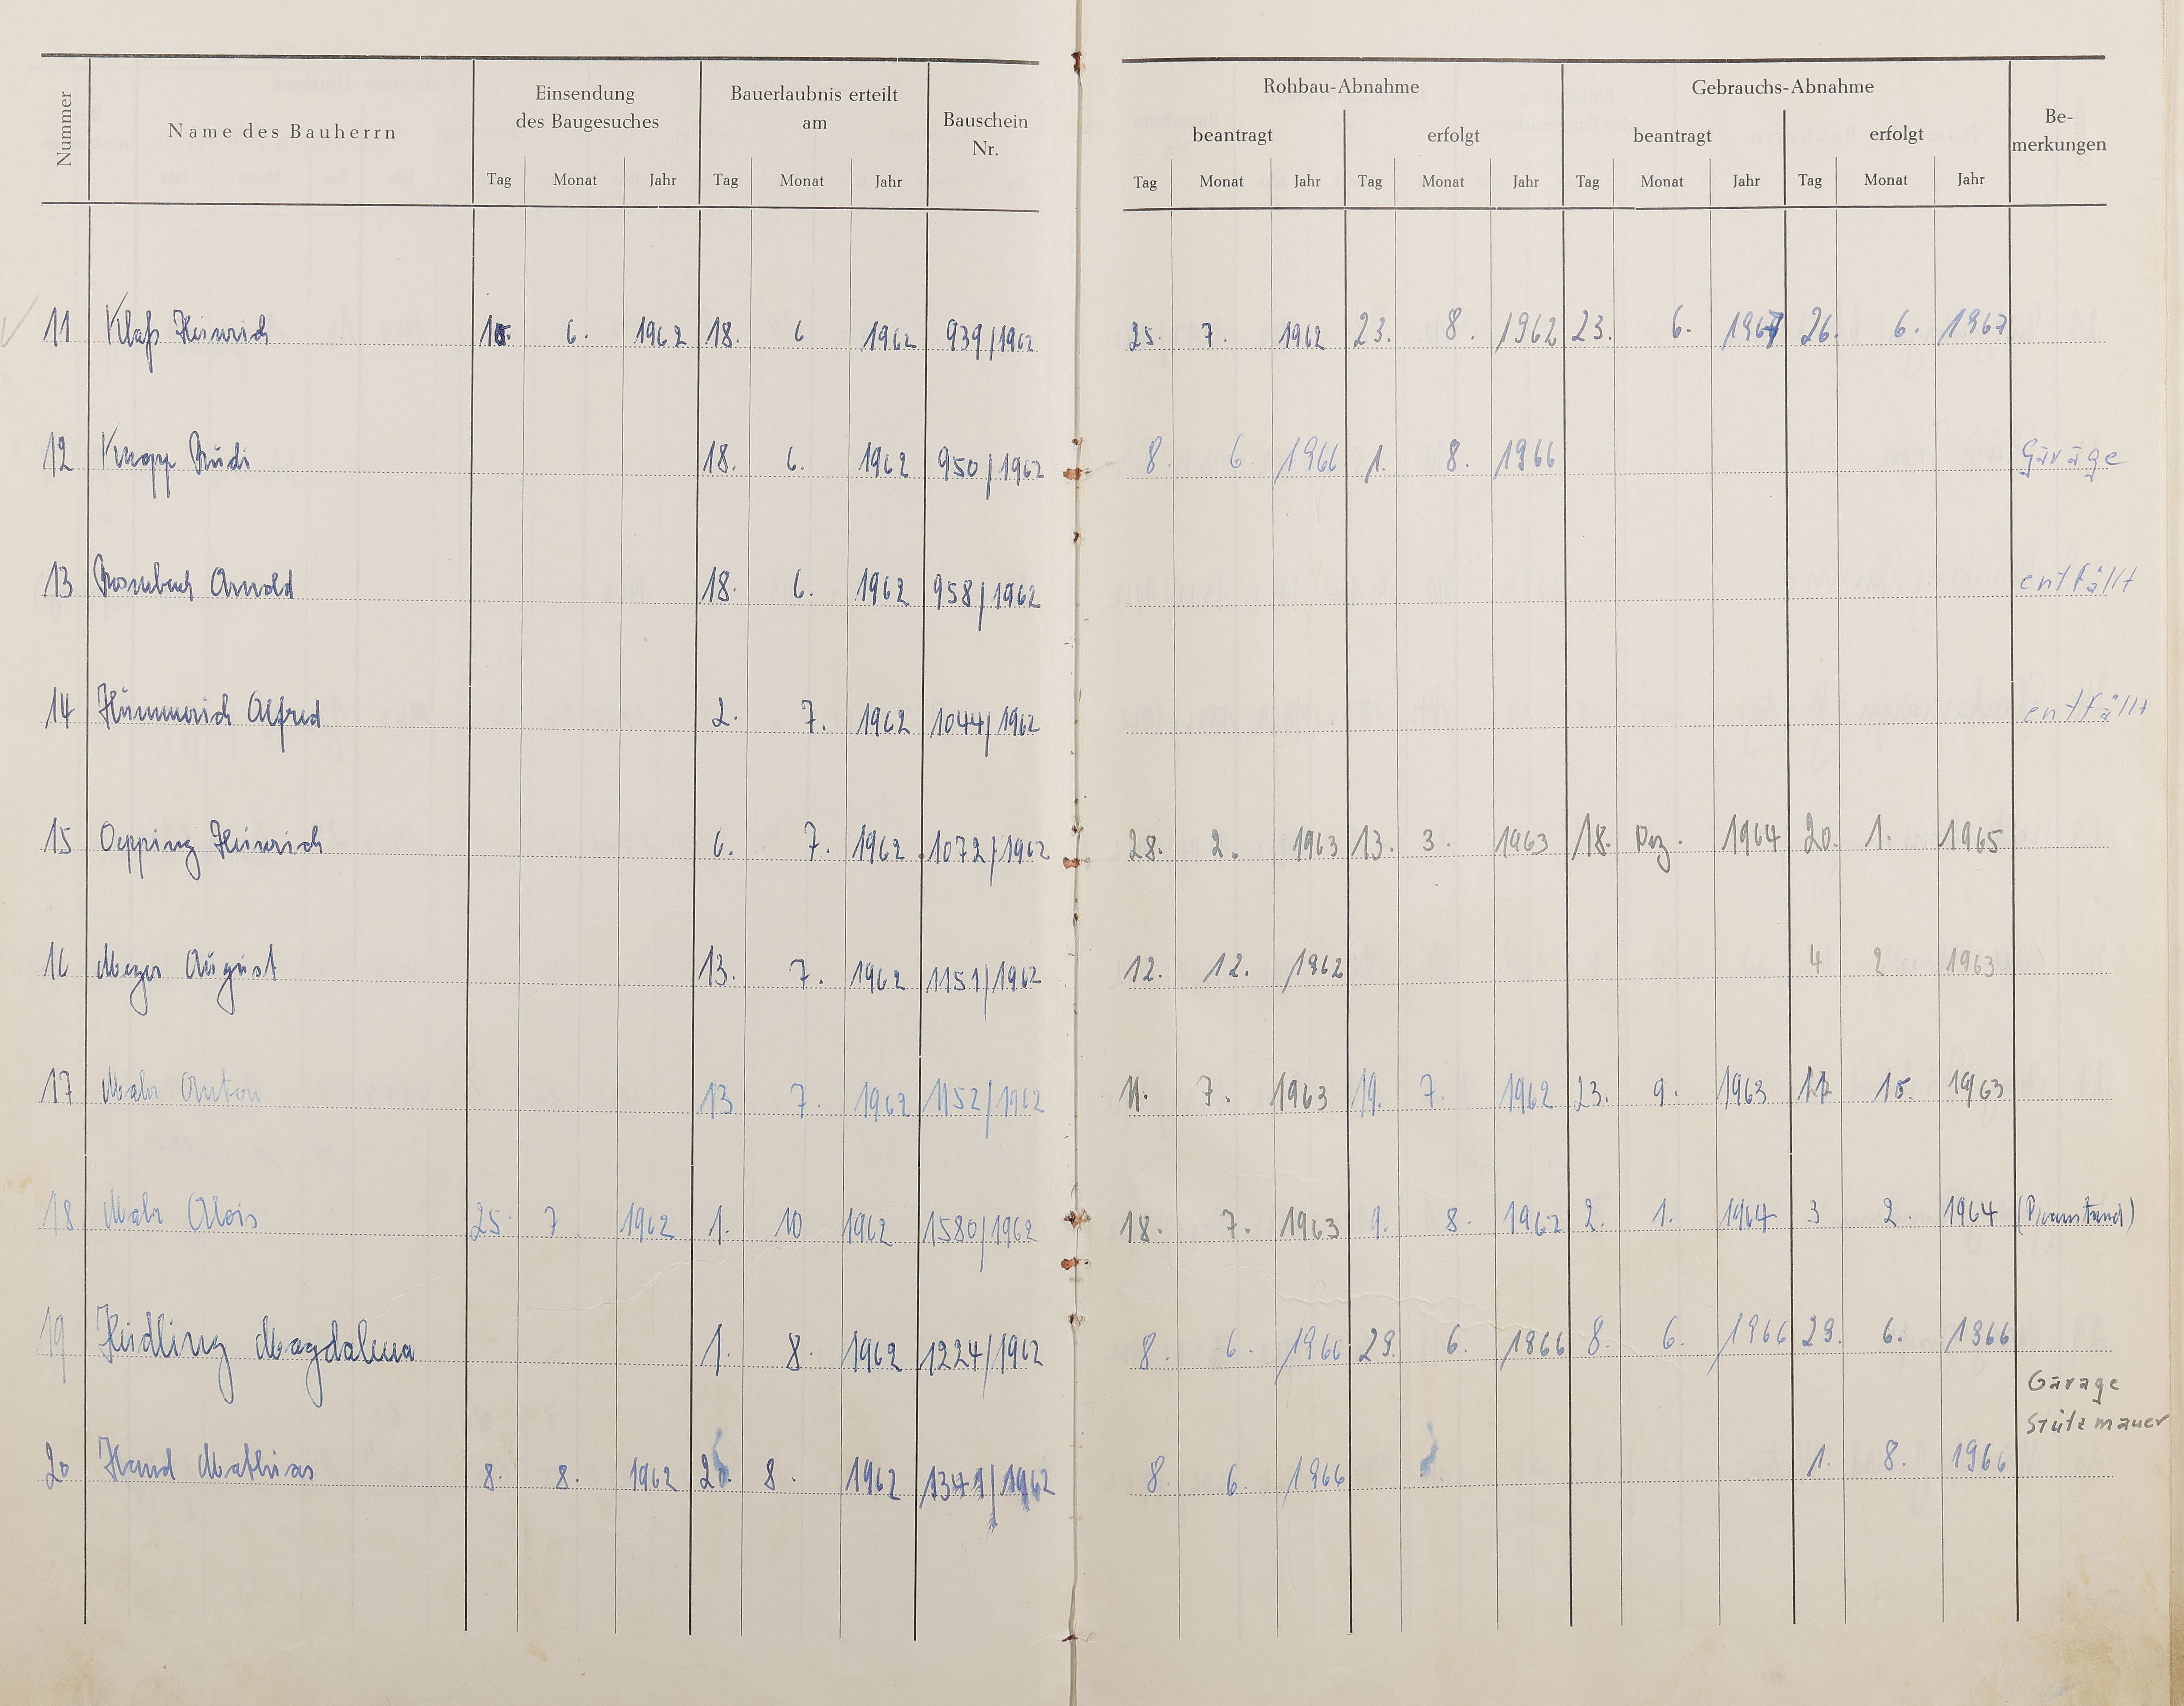 Nummer
Name des Bauherrn
Einsendung
des Baugesuches
Bauerlaubnis erteilt
am
Bauschein
Nr.
Rohbau-Abnahme
Gebrauchs-Abnahme
Be-
merkungen
beantragt erfolgt beantragt erfolgt
Tag Monat Jahr Tag Monat Jahr Tag Monat Jahr Tag Monat Jahr Tag Monat Jahr Tag Monat Jahr
11 Klaß Heinrich 10. 6. 1962 18. 6 1962 939/1962 25. 7. 1962 23. 8. 1962 23. 6. 1967 26. 6. 1967
12 Knopp Rudi 18. 6. 1962 950/1962 8. 6. 1966 1. 8. 1966 Garage
13 Arnold 18. 6. 1962 958/1962 entfällt
14 Hümmerich Alfred 2. 7. 1962 1044/1962 entfällt
15 Oepping Heinrich 6. 7. 1962 1072/1962 28. 2. 1963 13. 3. 1963 18. Dez. 1964 20. 1. 1965
16 Meyer August 13. 7. 1962 1151/1962 12. 12. 1962 4 2 1963
17 Mahr Anton 13 7. 1962 1152/1962 11. 7. 1963 19. 7. 1962 23. 9. 1963 10. 1963
18 Mahr Alois 25. 7. 1962 1. 10 1962 1580/1962 18. 7. 1963 9. 8. 1962 2. 1. 1964 3 2. 1964
19 Heidling Magdalena 1. 8. 1962 1224/1962 8. 6. 1966 29. 6. 1966 8. 6. 1966 29. 6. 1966
Garage
Stützmauer
20 Hand Mathias 8. 8. 1962 20. 8. 1962 8. 6. 1966 1. 8. 1966